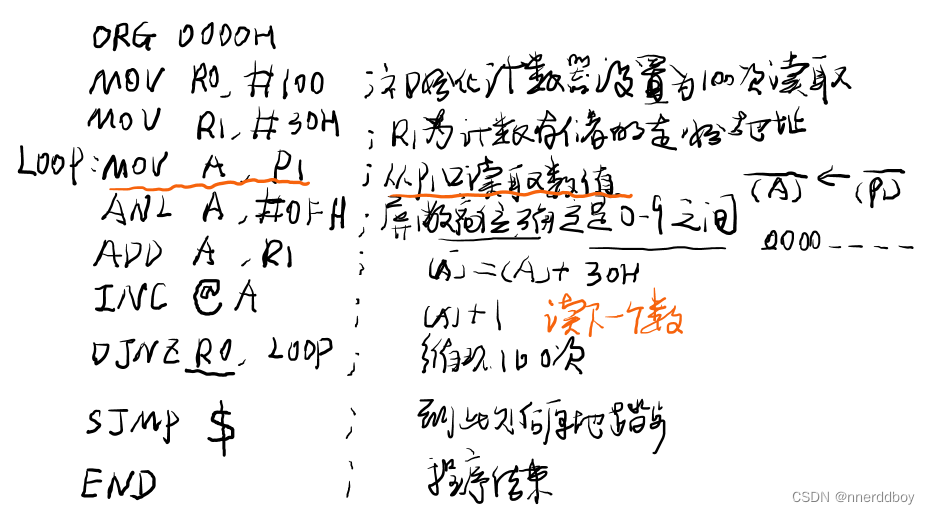 ORG 0000H
MOV R0, #100 ;初始化计数器设置为100次读取
MOV R1, #30H ;R1为计数存储的起始地址
LOOP: MOV A, P1 ;从P1口读取数值
(A) ← (P1)
ANL A, #0FH ;屏蔽高位,确定是0-9之间
0000----
ADD A, R1 ; (A)=(A)+30H
INC @A ; (A)+1 读下一个数
DJNZ R0, LOOP ; 循环100次
SJMP $ ; 到此处后原地踏步
END ; 程序结束
CSDN @nnerddboy